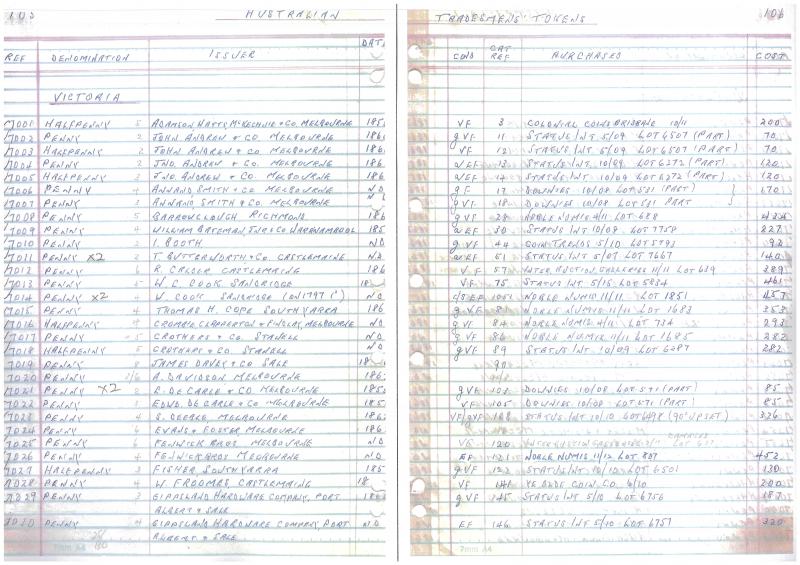 105 AUSTRALIAN TRADESMENS TOKENS 106
REF DENOMINATION ISSUER DATE COND CAT REF PURCHASED COST
VICTORIA
7001 HALFPENNY 5 ADAMSON, WATTS, McKECHNIE & CO. MELBOURNE 185 VF 3 COLONIAL COINS BRISBANE 10/11 200
7002 PENNY 2 JOHN ANDREW & CO. MELBOURNE 186 gVF 11 STATUS INT 5/09 LOT 6507 (PART) 70
7003 HALFPENNY 2 JOHN ANDREW & CO. MELBOURNE 186 VF 12 STATUS INT 5/09 LOT 6507 (PART) 70
7004 PENNY 2 JNO. ANDREW & CO. MELBOURNE 186 EF 13 STATUS INT 10/09 LOT 6272 (PART) 120
7005 HALFPENNY 3 JNO. ANDREW & CO. MELBOURNE 186 EF 14 STATUS INT 10/09 LOT 6272 (PART) 120
7006 PENNY 4 ANNAND SMITH & CO. MELBOURNE ND gF 17 DOWNIES 10/08 LOT 531 (PART) } 170
7007 PENNY 3 ANNAND, SMITH & CO. MELBOURNE ND gVF 18 DOWNIES 10/08 LOT 531 PART
7008 PENNY 5 BARROWCLOUGH RICHMOND 186 gVF 28 NOBLE NUMIS 4/11 LOT 688
7009 PENNY 4 WILLIAM BATEMAN JNR & CO. WARRNAMBOOL 185 EF 30 STATUS INT 10/08 LOT 7758 227
7010 PENNY 2 I. BOOTH ND gVF 44 COIN TRENDS 5/10 LOT 5793
7011 PENNY X2 3 T. BUTTERWORTH & CO. CASTLEMAINE ND EF 51 STATUS INT 5/09 LOT 7667 140
7012 PENNY 6 R. CALDER CASTLEMAINE 186 VF 57 INTER AUCTION GALLERIES 11/11 LOT 639 289
7013 PENNY 5 W. C. COOK SANDRIDGE 18 VF 75 STATUS INT 5/15 LOT 5854 461
7014 PENNY X2 4 W. COOK SANDRIDGE (ON 1797 1d) ND NOBLE NUMIS 11/11 LOT 1851 457
7015 PENNY 4 THOMAS H. COPE SOUTH YARRA 186 gVF 81 NOBLE NUMIS 11/11 LOT 1683 353
7016 HALFPENNY 4 CROMBIE, CLAPPERTON & FINDLAY, MELBOURNE ND gVF 84 NOBLE NUMIS. 4/11 LOT 734 293
7017 PENNY 5 CROTHERS & CO. STAWELL ND gVF 86 NOBLE NUMIS 11/11 LOT 1685 282
7018 HALFPENNY 5 CROTHERS & CO. STAWELL ND gVF 89 STATUS INT 10/09 LOT 6287 282
7019 PENNY JAMES DAVEY & CO SALE 18 90
7020 PENNY A. DAVIDSON MELBOURNE 186
7021 PENNY X2 2 R. DE CARLE & CO MELBOURNE 185 gVF DOWNIES 10/08 LOT 571 (PART) 85
7022 PENNY 1 EDWD. DE CARLE & CO. MELBOURNE 185 VF 105 DOWNIES 10/08 LOT 571 (PART) 85
7023 PENNY 4 S. DEEBLE MELBOURNE 186 VF/gVF 108 STATUS INT 10/10 LOT 6498 (90° UPSET) 326
7024 PENNY 6 EVANS & FOSTER MELBOURNE 186
7025 PENNY 6 FENWICK BROS MELBOURNE ND VF 120 INTER AUCTION GALLERIES
7026 PENNY 4 FENWICK BROS MELBOURNE ND EF 121 NOBLE NUMIS. 11/12 LOT 807 452
7027 HALFPENNY 3 FISHER SOUTH YARRA 185 gVF 122 STATUS INT 10/12 LOT 6501 130
7028 PENNY 4 W. FROOMES, CASTLEMAINE 18 VF 141 YE OLDE COIN CO. 6/10 200
7029 PENNY 3 GIPPSLAND HARDWARE COMPANY, PORT 186 gVF 145 STATUS INT 5/10 LOT 6756 187
ALBERT & SALE
7030 PENNY 4 GIPPSLAND HARDWARE COMPANY, PORT ND EF 146 STATUS INT 5/10 LOT 6751 320
ALBERT & SALE
7mm A4 7mm A4